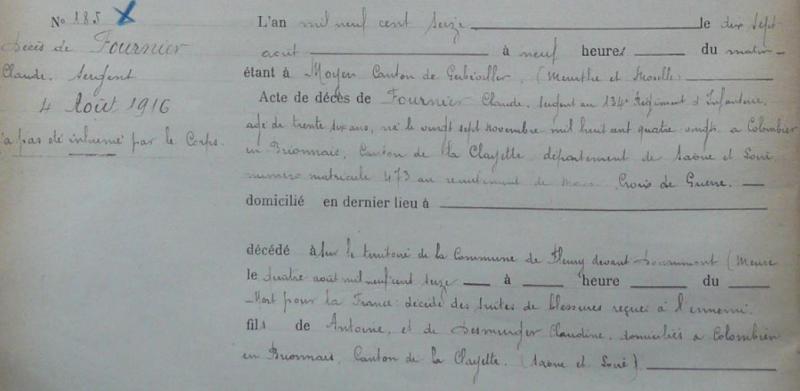 No 185
Décès de Fournier
Claude. Sergent
4 Août 1916
n'a pas été inhumé par le Corps.
L'an mil neuf cent seize le dix sept
août à neuf heures du matin
étant à Moyen Canton de Gerbéviller, (Meurthe et Moselle)
Acte de décès de Fournier Claude, sergent au 134e Régiment d'Infanterie,
âgé de trente six ans, né le vingt sept novembre mil huit cent quatre vingt à Colombier
en Brionnais, Canton de la Clayette département de Saône et Loire
numéro matricule 473 au recrutement de Macon. Croix de Guerre.
domicilié en dernier lieu à
décédé à sur le territoire de la Commune de Fleury devant Douaumont (Meuse
le quatre août mil neuf cent seize à heure du
Mort pour la France: décédé des suites de blessures reçues à l'ennemi.
fils de Antoine, et de Desmurger Claudine, domiciliés à Colombier
en Brionnais, Canton de la Clayette. (Saône et Loire)